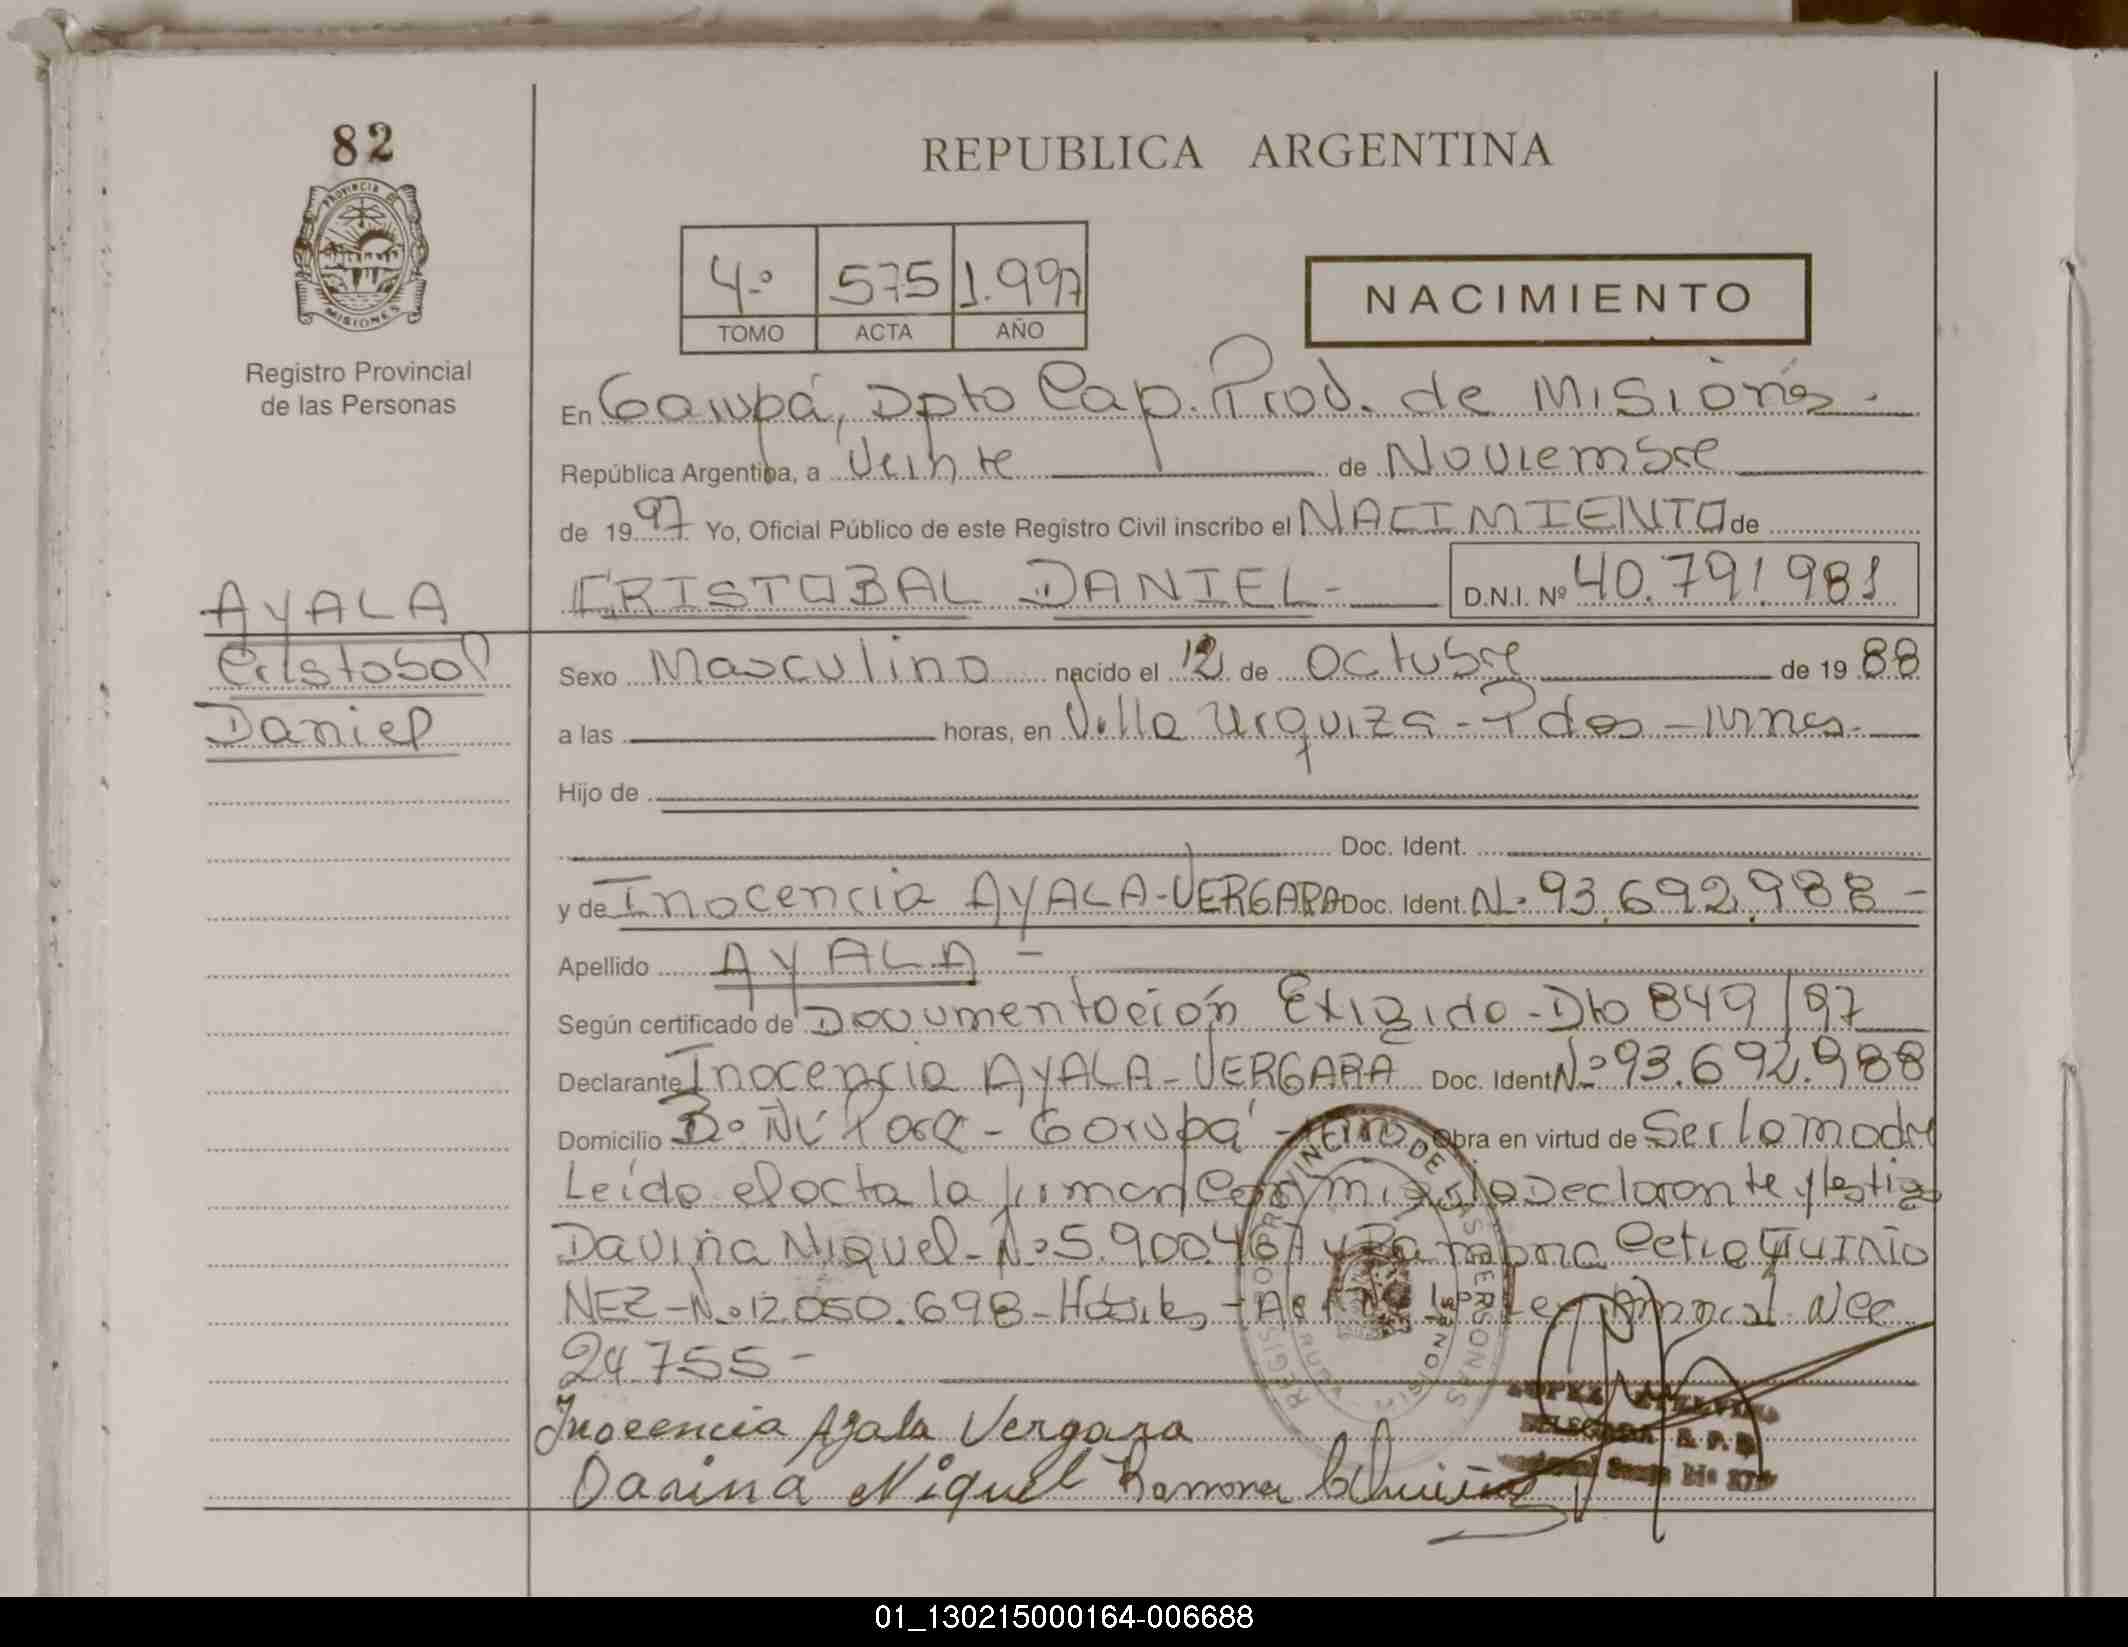 82
PROVINCIA DE
MISIONES
Registro Provincial
de las Personas
REPUBLICA ARGENTINA
4º 575 1.997
TOMO ACTA AÑO
NACIMIENTO
En Garupá, Dpto Cap. Prov. de Misiones.
República Argentina, a Veinte de Noviembre
de 1997 Yo, Oficial Público de este Registro Civil inscribo el NACIMIENTO de
AYALA
Cristobal
Daniel
CRISTOBAL DANIEL- D.N.I. Nº 40.791.981
Sexo Masculino nacido el 12 de Octubre de 1988
a las horas, en Villa Urquiza - Pdas - Mnes.
Hijo de
Doc. Ident.
y de Inocencia AYALA-VERGARA Doc. Ident. Nº 93.692.988-
Apellido AYALA-
Según certificado de Documentación Exigida - Dto 849/97
Declarante Inocencia AYALA-VERGARA Doc. Ident Nº 93.692.988
Domicilio Bº Ñú Porá - Garupá - Obra en virtud de Ser la madre
Leída el acta la firman Con migo la Declarante y testigos
Daviña Miguel - Nº 5.900.467 y Ramona Celia QUIÑO
NEZ - Nº 12.050.698 - Hábiles - Nac
24755-
REGISTRO PROVINCIAL DE LAS PERSONAS
MISIONES
Inocencia Ayala Vergara
DELEGADA R. P. P.
Davina Miguel Ramona
01_130215000164-006688